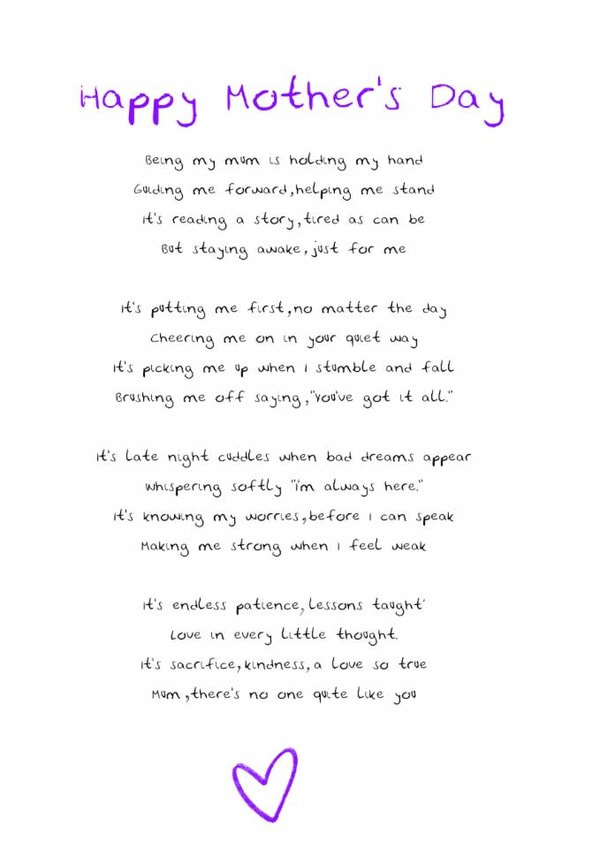 Happy Mother's Day
Being my mum is holding my hand
Guiding me forward,helping me stand
It's reading a story,tired as can be
But staying awake,just for me
It's putting me first,no matter the day
Cheering me on in your quiet way
It's picking me up when I stumble and fall
Brushing me off saying,"You've got it all."
It's late night cuddles when bad dreams appear
Whispering softly "I'm always here."
It's knowing my worries,before I can speak
Making me strong when I feel weak
It's endless patience,lessons taught'
Love in every little thought.
It's sacrifice,kindness,a love so true
Mum,there's no one quite like you